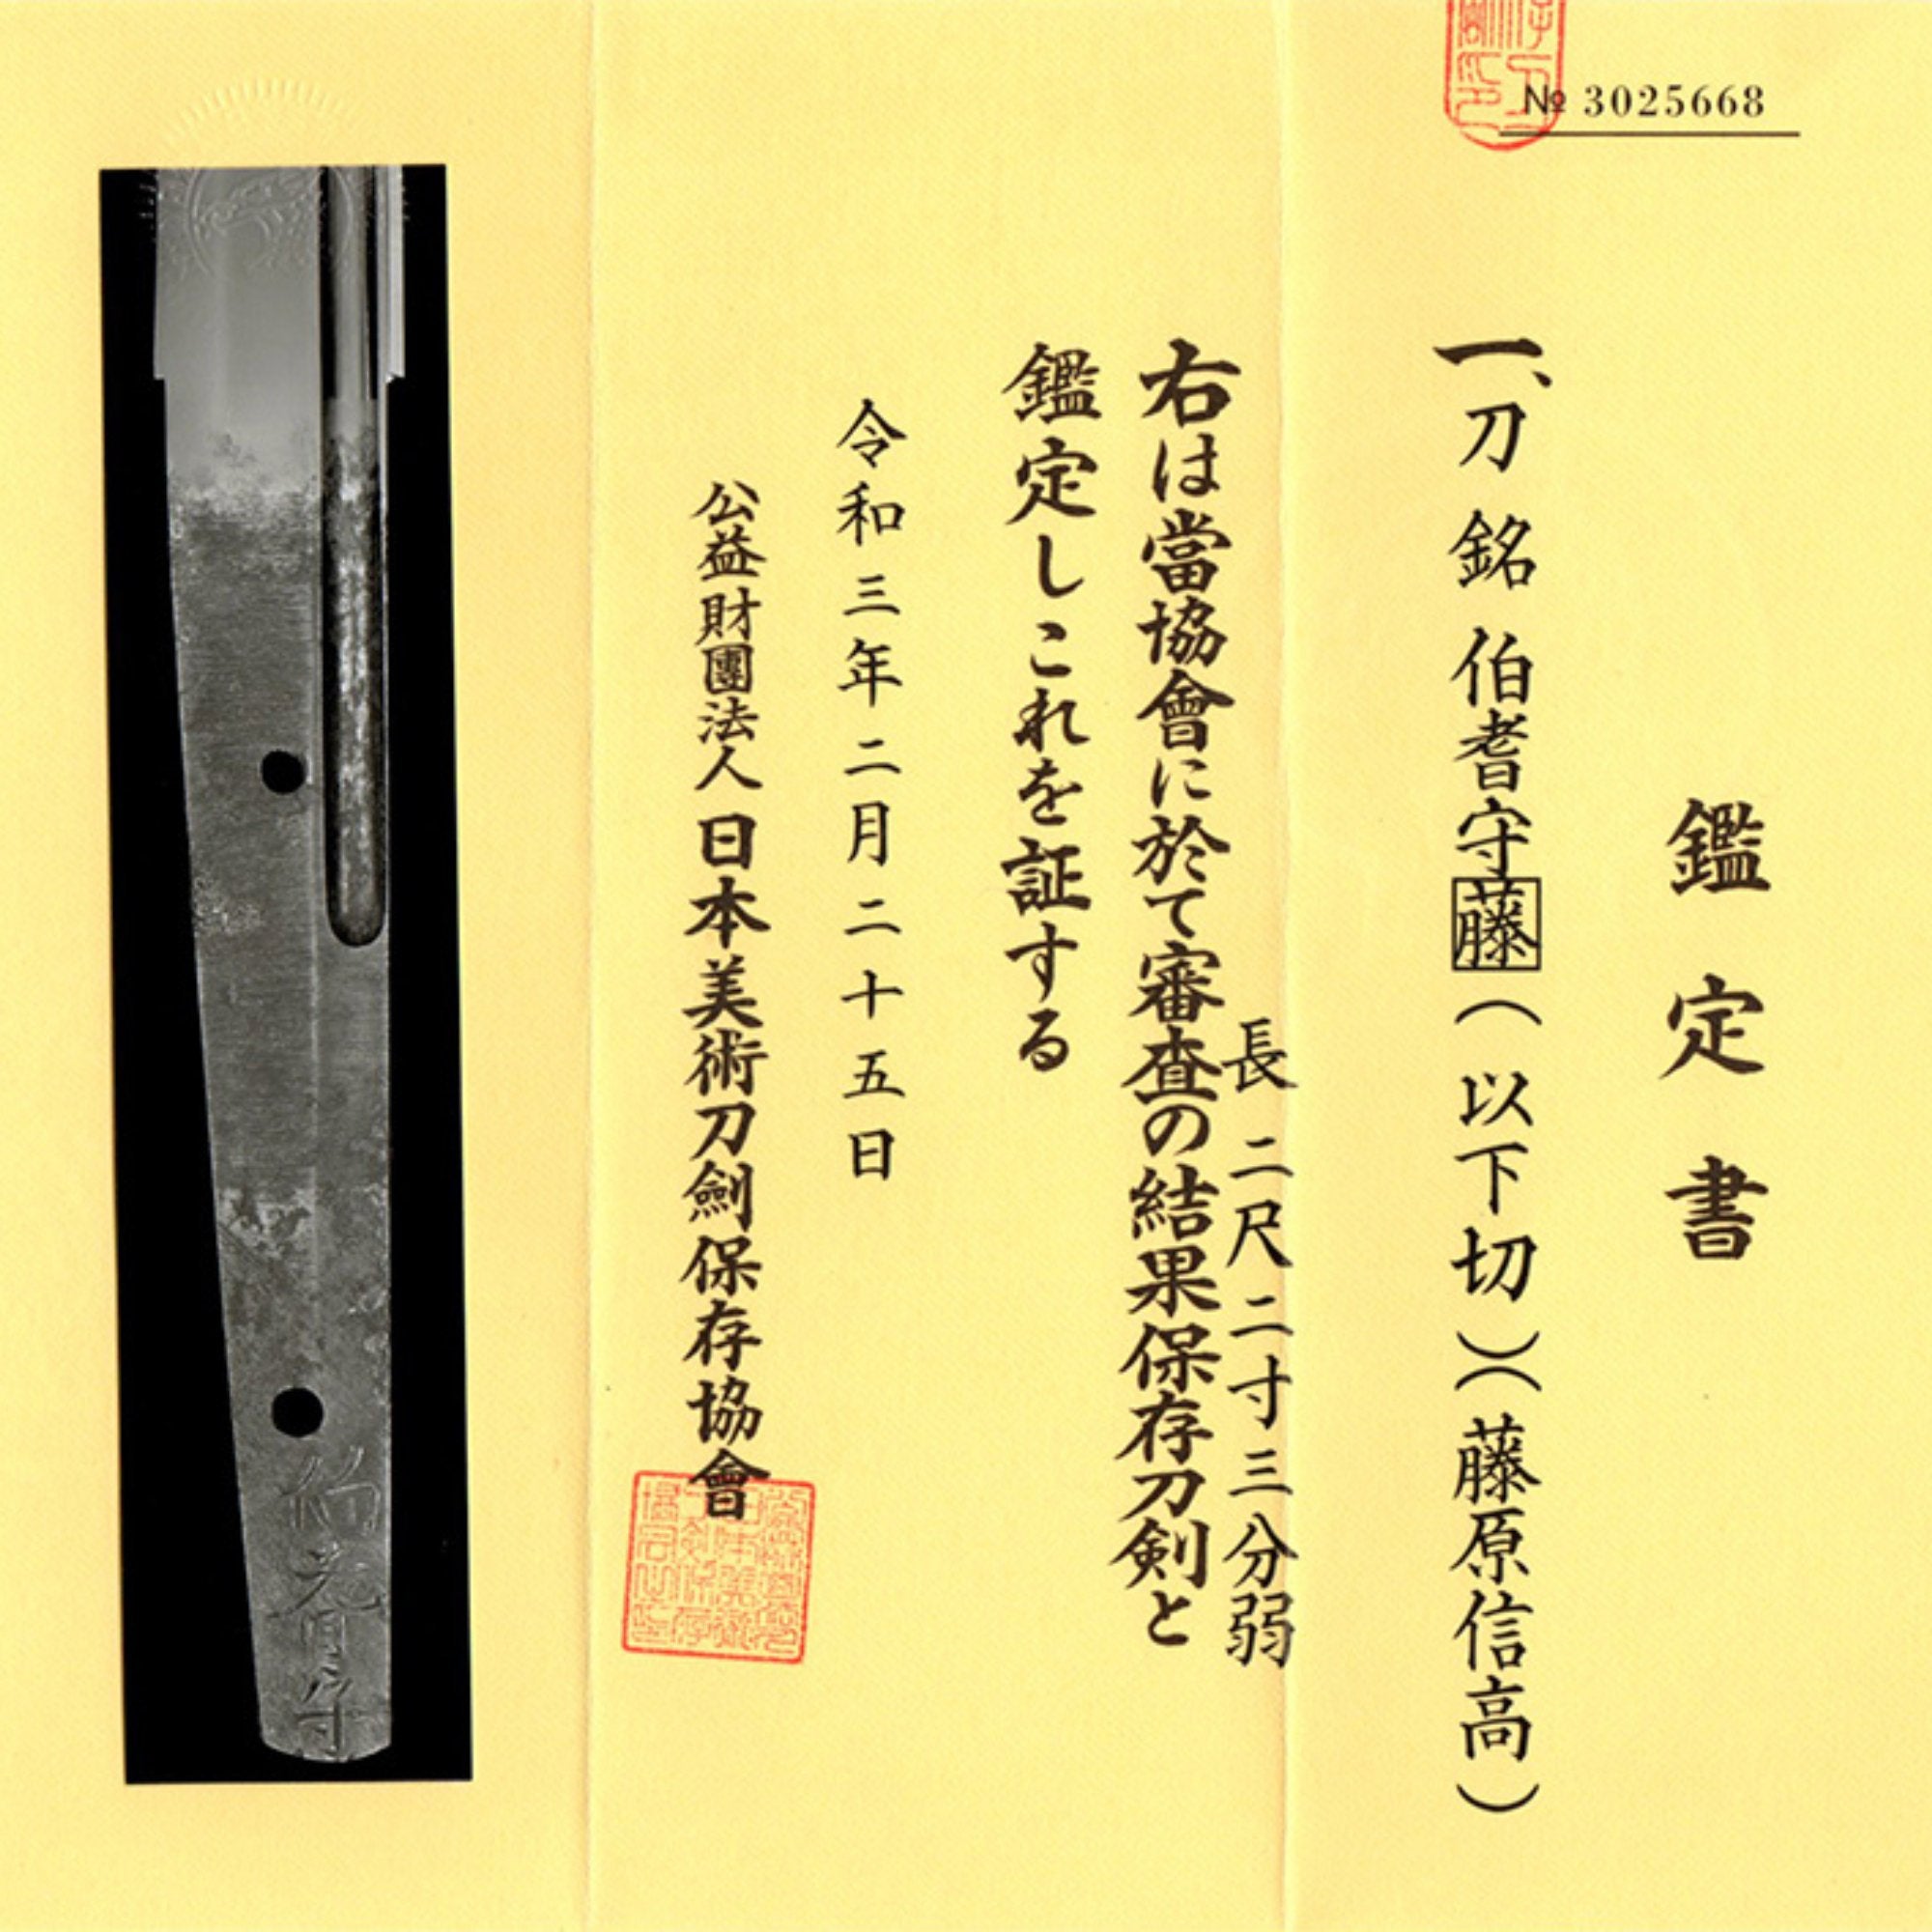 № 3025668
鑑定書
一、刀 銘 伯耆守藤(以下切)(藤原信高)
長 二尺二寸三分弱
右は當協會に於て審査の結果保存刀剣と
鑑定しこれを証する
令和三年二月二十五日
公益財團法人 日本美術刀劍保存協會
伯耆守